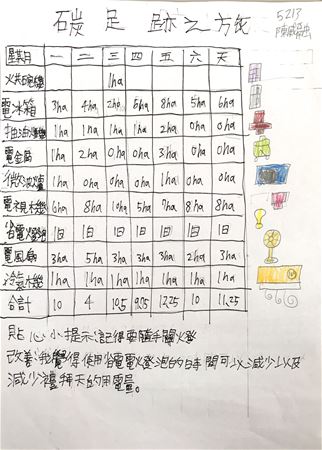 碳足跡之旅
5213
星期 一 二 三 四 五 六 天
1ha
電冰箱 3ha 4ha 2ha 5ha 8ha 5ha 6ha
抽油煙機 1ha 1ha 1ha 1ha 2ha 0ha 0ha
電金鍋 1ha 2ha 0ha 0ha 3ha 0ha 0ha
微波爐 1ha 0ha 0ha 0ha 1ha 0ha 0ha
電視機 6ha 8ha 10ha 5ha 7ha 8ha 8ha
省電燈泡 1日 1日 1日 1日 1日 1日 1日
電風扇 3ha 5ha 3ha 3ha 3ha 2ha 3ha
冷氣機 1ha 1ha 1ha 1ha 1ha 1ha 1ha
合計 10 4 10.5 9.05 12.25 10 11.25
貼心小提示:記得要隨手關火登
改善:我覺得使用省電火登泡的時間可以減少以及
減少禮拜天的用電量。